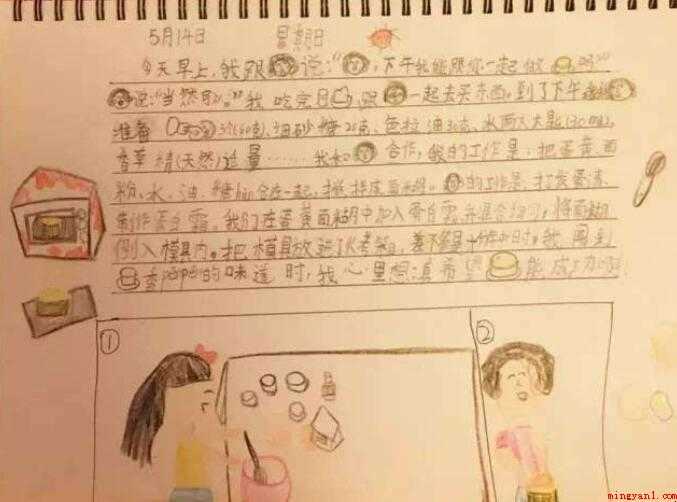 5月14日 星期日
今天早上,我跟说:“,下午我能跟你一起做吗?”
说:“当然可以。”我吃完日,跟一起去买东西。到了下午
准备3个(140克)、细砂糖25克、色拉油30克、水两大匙(30ml)、
香草精(天然)适量……我和合作,我的工作是:把蛋黄面
粉、水、油、糖hùn合在一起,搅拌成面糊。的工作是:打发蛋清,
制作蛋白霜。我们在蛋黄面糊中加入蛋白霜并混合均匀,将面糊
倒入模具内。把模具放进了烤箱,差不多时,我闻到
香pēnpēn的味道时,我心里想:真希望能成功啊
①
②
mingyan1.com